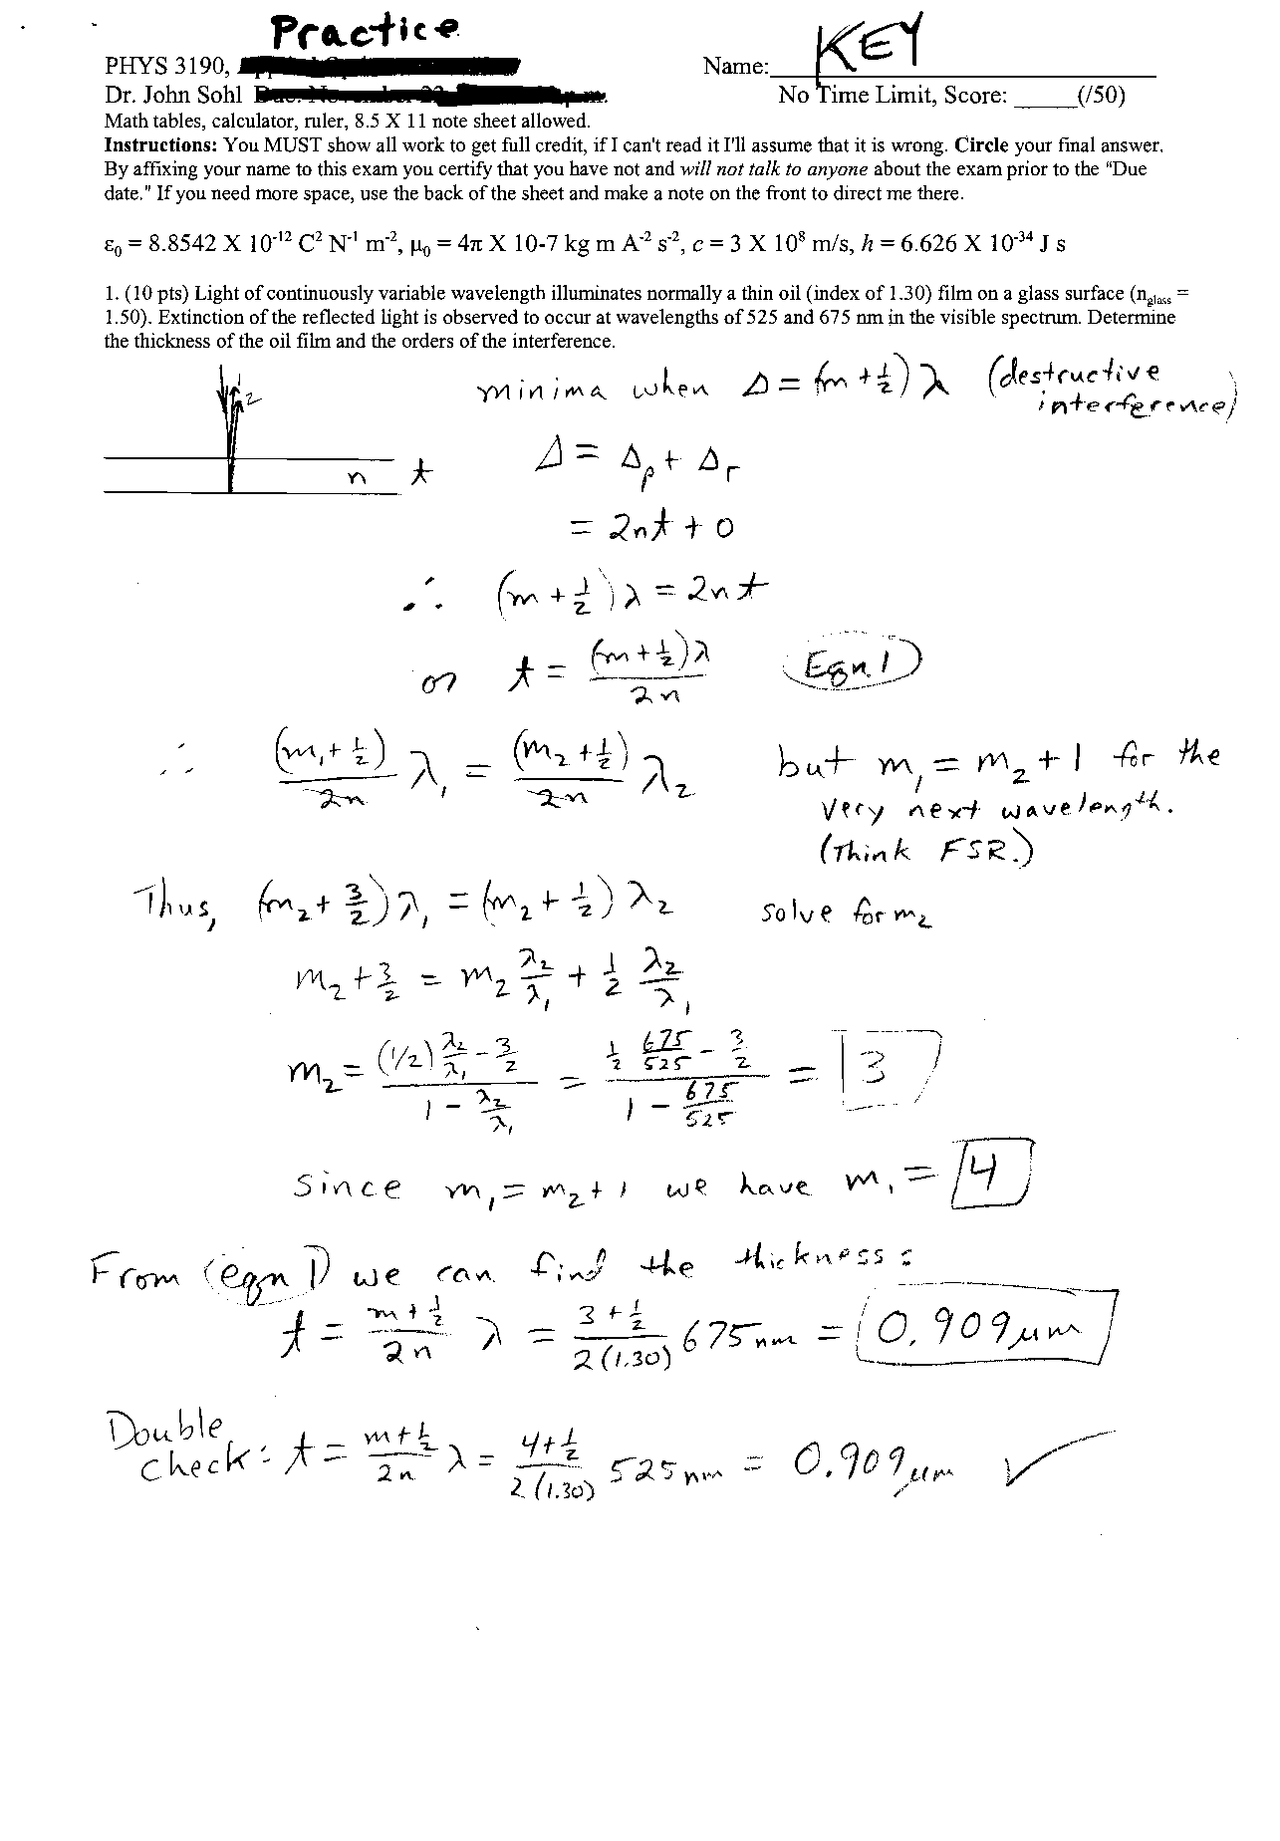 Practice
PHYS 3190, Name: KEY
Dr. John Sohl No Time Limit, Score: _____(/50)
Math tables, calculator, ruler, 8.5 X 11 note sheet allowed.
Instructions: You MUST show all work to get full credit, if I can't read it I'll assume that it is wrong. Circle your final answer.
By affixing your name to this exam you certify that you have not and will not talk to anyone about the exam prior to the "Due
date." If you need more space, use the back of the sheet and make a note on the front to direct me there.
ε₀ = 8.8542 X 10⁻¹² C² N⁻¹ m⁻², μ₀ = 4π X 10-7 kg m A⁻² s⁻², c = 3 X 10⁸ m/s, h = 6.626 X 10⁻³⁴ J s
1. (10 pts) Light of continuously variable wavelength illuminates normally a thin oil (index of 1.30) film on a glass surface (n_glass =
1.50). Extinction of the reflected light is observed to occur at wavelengths of 525 and 675 nm in the visible spectrum. Determine
the thickness of the oil film and the orders of the interference.
1 2
n t
minima when Δ = (m + 1/2) λ (destructive
interference)
Δ = Δp + Δr
= 2nt + 0
∴ (m + 1/2) λ = 2nt
or t = (m + 1/2) λ / 2n Eqn. 1
∴ (m₁ + 1/2) / 2n λ₁ = (m₂ + 1/2) / 2n λ₂ but m₁ = m₂ + 1 for the
very next wavelength.
(Think FSR.)
Thus, (m₂ + 3/2) λ₁ = (m₂ + 1/2) λ₂ solve for m₂
m₂ + 3/2 = m₂ λ₂/λ₁ + 1/2 λ₂/λ₁
m₂ = ((1/2) λ₂/λ₁ - 3/2) / (1 - λ₂/λ₁) = (1/2 675/525 - 3/2) / (1 - 675/525) = 3
Since m₁ = m₂ + 1 we have m₁ = 4
From (eqn 1) we can find the thickness:
t = (m + 1/2) / 2n λ = (3 + 1/2) / 2(1.30) 675 nm = 0.909 μm
Double
check: t = (m + 1/2) / 2n λ = (4 + 1/2) / 2(1.30) 525 nm = 0.909 μm ✓